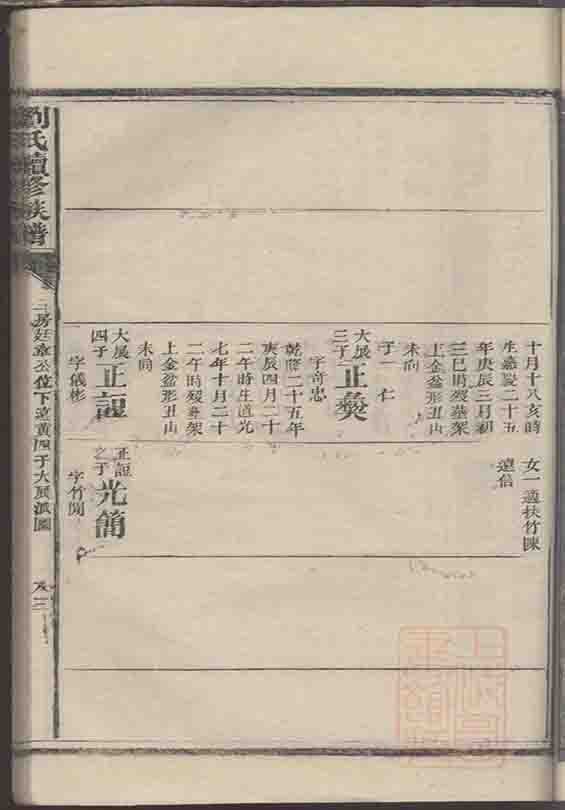 十月十八亥時
生嘉慶二十五
年庚辰三月初
三巳時歿葬架
上金盆形丑山
未向
子一 仁
大展三子 正彝
字奇忠
乾隆二十五年
庚辰四月二十
二午時生道光
七年十月二十
二午時歿葬架
上金盆形丑山
未向
大展四子 正諠
字儀彬
女一適扶竹陳
遠信
正諠之子 光簡
字竹閒
劉氏續修族譜
二房廷章公位下遠黃四子大展派圖